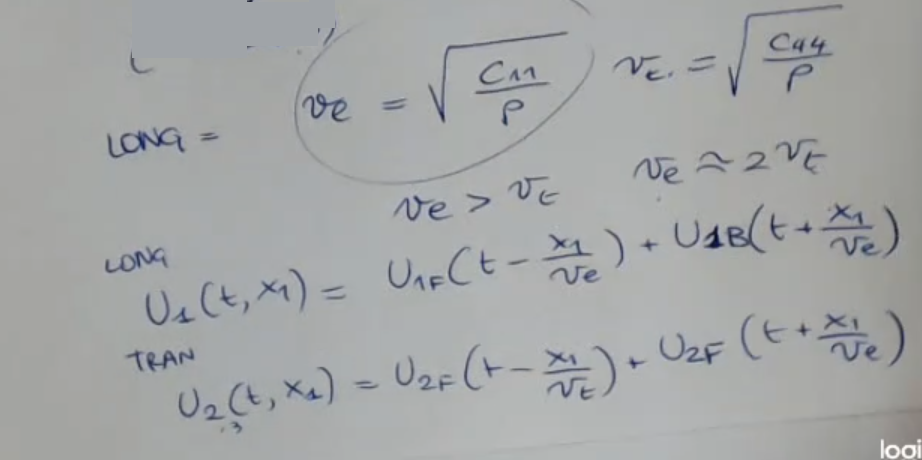 LONG = ve = √(C11/ρ) vt. = √(C44/ρ)
ve > vt ve ≈ 2 vt
LONG
U1(t, x1) = U1F(t - x1/ve) + U1B(t + x1/ve)
TRAN
U2(t, x1) = U2F(t - x1/vt) + U2F(t + x1/ve)
,3
loai